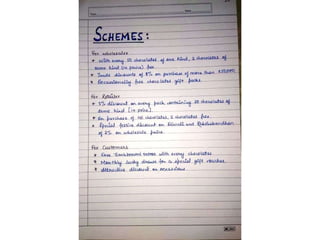 SCHEMES:
For wholesaler
• With every 50 chocolates of one kind, 2 chocolates of
same kind (in pairs) free
• Trade discounts of 8% on purchase of more than
• Occasionally free chocolates gift packs
For Retailer
• 5% discount on every pack containing 20 chocolates of
same kind (in pairs).
• On purchase of 100 chocolates, 2 chocolates free.
• Special festive discount on Diwali and Rakshabandhan
of 2% on wholesale price.
For Customers
• Free with every chocolates
• Monthly lucky draws for a special gift voucher
• Attractive discount on occasions